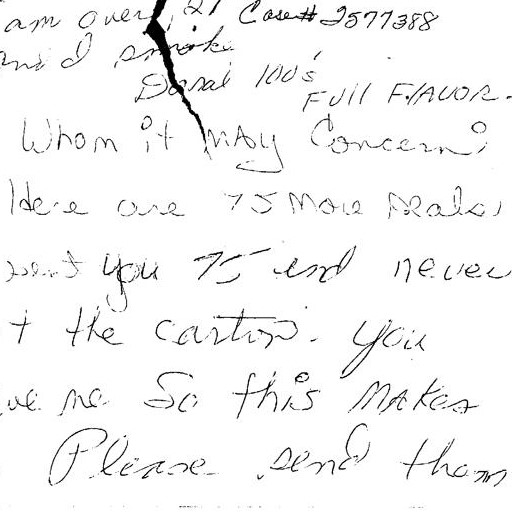 am over 21 Case# 2577388
and I smoke
Doral 100's
Full Flavor.
Whom it may Concern;
Here are 75 More seals,
sent you 75 and never
t the carton. you
ve me So this Makes
Please send them